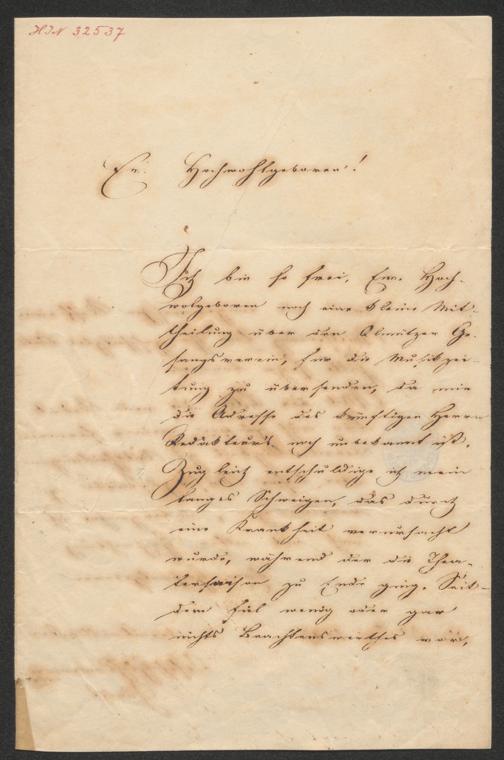 HIN 32537
Ew. Hochwohlgeboren!
Ich bin so frei, Euer Hoch-
wolgeboren noch eine kleine Mit-
theilung über den Olmützer Ge-
sangsverein, für die Musikzei-
tung zu übersenden, da mir
die Adresse des künftigen Herrn
Redakteurs noch unbekannt ist.
Zugleich entschuldige ich mein
langes Schweigen, das durch
eine Krankheit verursacht
wurde, während der die Thea-
tersaison zu Ende ging. Seit-
dem fiel wenig oder gar
nichts Beachtenswerthes vor,